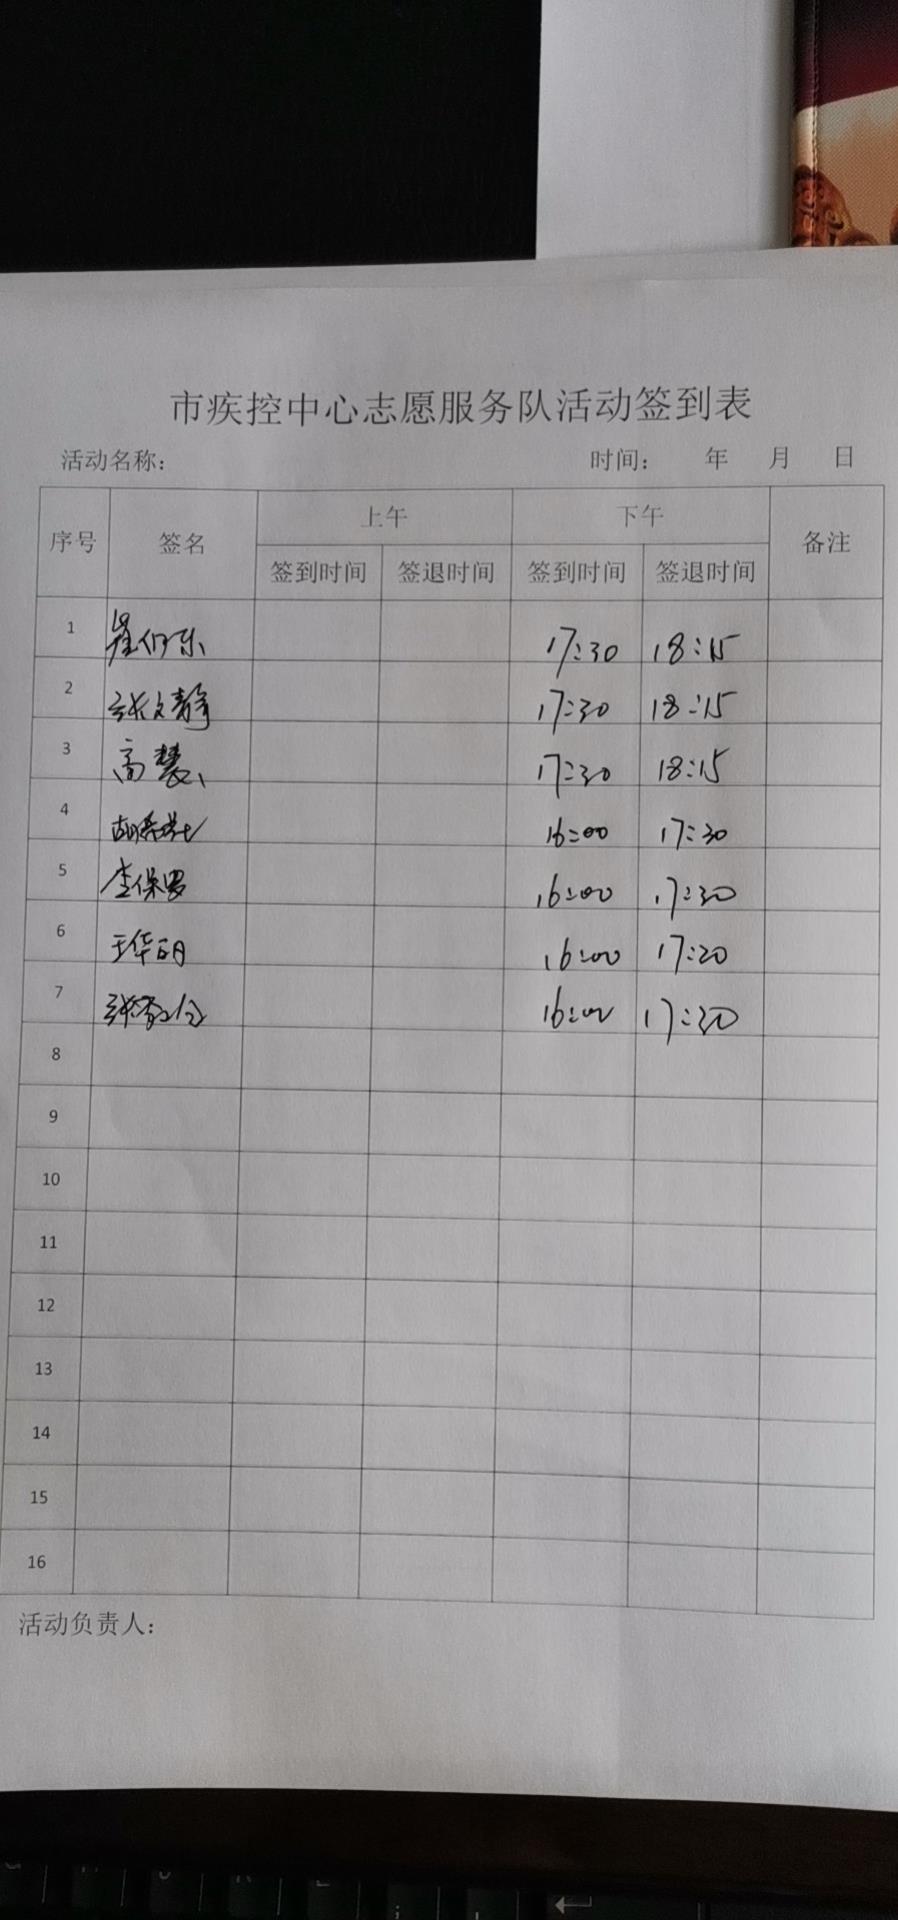 市疾控中心志愿服务队活动签到表
活动名称： 时间： 年 月 日
序号 签名 上午 下午 备注
签到时间 签退时间 签到时间 签退时间
1 17:30 18:15
2 张文静 17:30 18:15
3 高慧 17:30 18:15
4 16:00 17:30
5 李保罗 16:00 17:30
6 王华明 16:00 17:30
7 16:00 17:30
8
9
10
11
12
13
14
15
16
活动负责人：